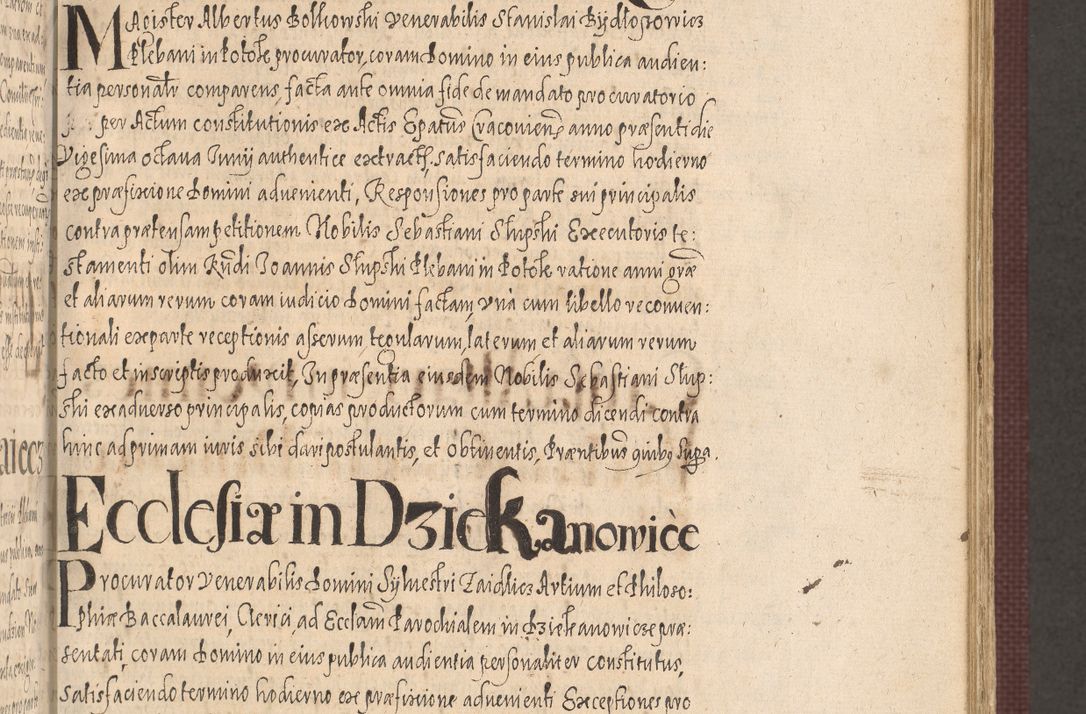 Magister Albertus Bolkowski venerabilis Stanislai Rydłoszowicz
Plebani in Potok procurator, coram Domino in eius publica audien:
tia personalr comparens, facta ante omnia fide de mandato procuratorio
per Actum constitutionis ex Actis Epatus Cracovien anno præsenti die
Vigesima octava Junij authentice extract, satisfaciendo termino hodierno
ex præfixione Domini advenienti, Responsiones pro parte sui principalis
contra prætensam petitionem Nobilis Sebastiani Słupski Executoris te:
stamenti olim Rndi Joannis Słupski Plebani in Potok ratione anni græ
et aliarum rerum coram iudicio Domini factam, vna cum libello reconven:
tionali ex parte receptionis asserum, tegularum, laterum, et aliarum rerum
facto et in scriptis produxit, In præsentia eiusdem Nobilis Sebastiani Słup:
ski ex adverso principalis, copias productorum cum termino dicendi contra
hinc ad primam iuris sibi dari postulantis, et obtinentis, Præntibus quibus supra.
Ecclesiæ in Dziekanowice
Procurator Venerabilis Domini Sylvestri Zaidlicz Artium et Philoso:
phiæ Baccalaurei, Clerici, ad Ecclam Parochialem in Dziekanowicze præ:
sentati, coram Domino in eius publica audientia personaliter constitutus,
satisfaciendo termino hodierno ex præfixione advenienti Exceptiones pro